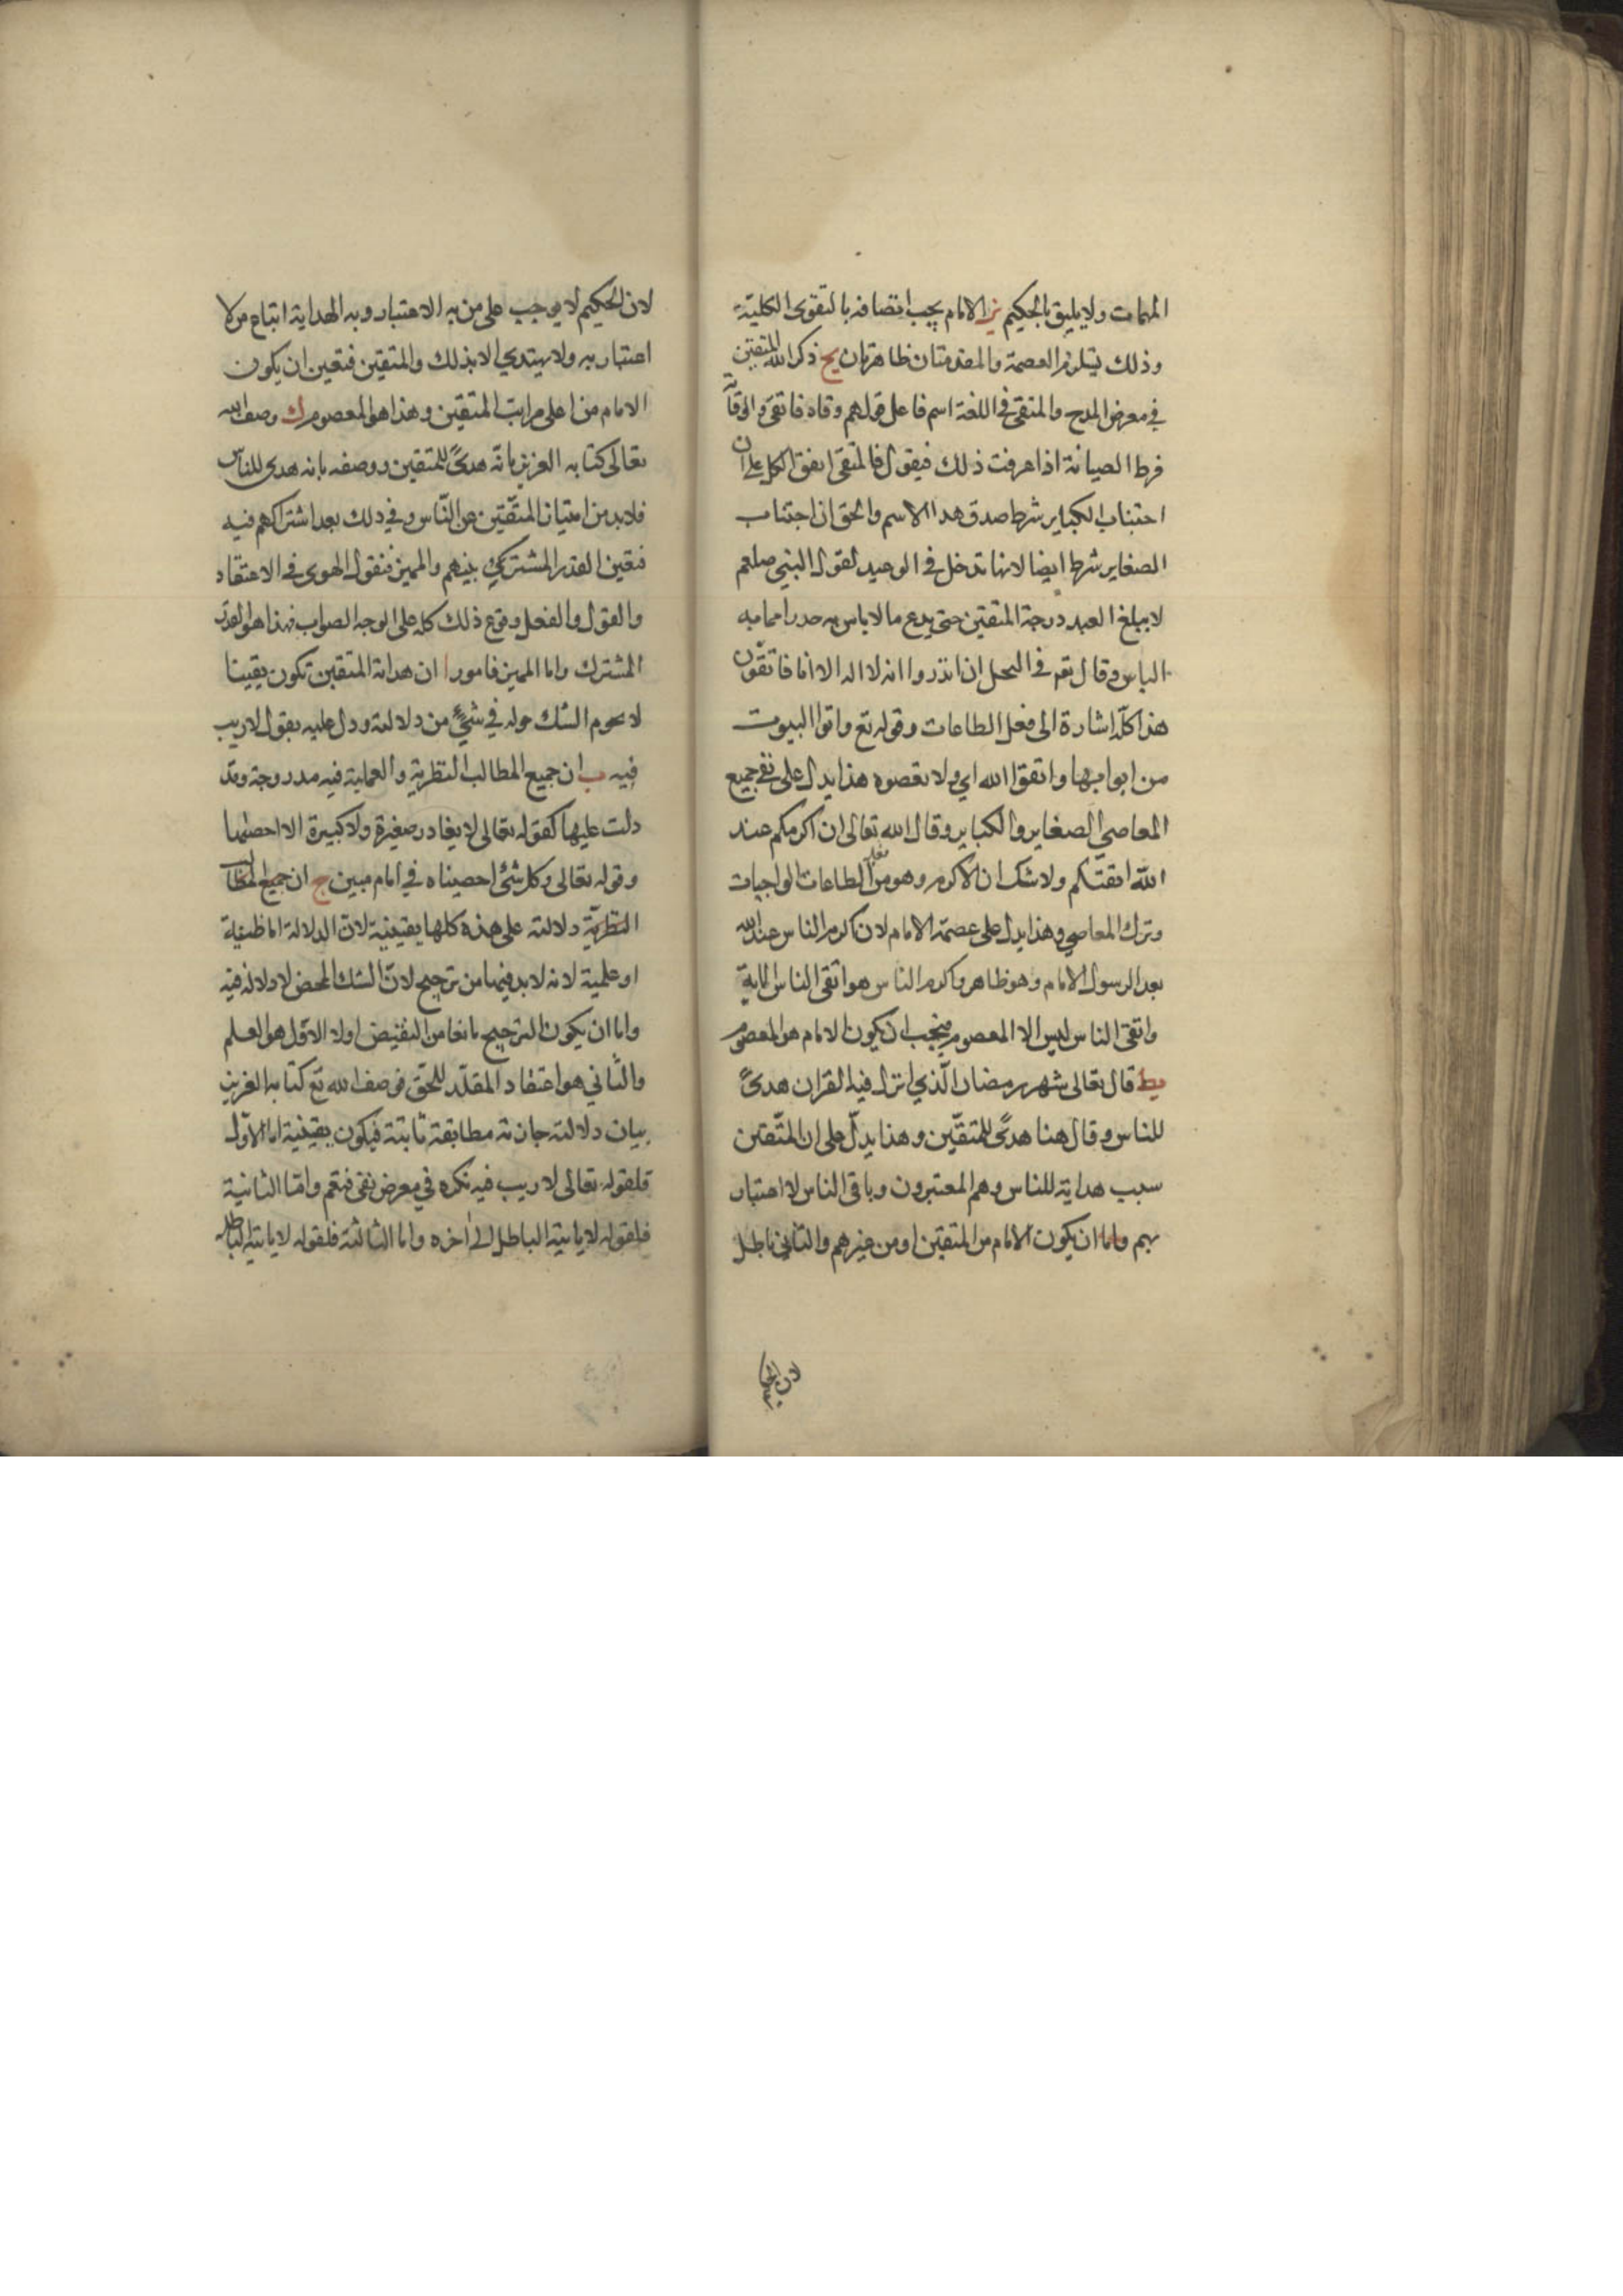 المهمات ولا يليق بالحكيم يز الامام يجب اتصافه بالتقوى الكلية
وذلك يستلزم العصمة والمقدمتان ظاهرتان يح ذكر الله المتقين
في معرض المدح والمتقي في اللغة اسم فاعل من قولهم وقاه فاتقى والوقاية
فرط الصيانة اذا عرفت ذلك فيقول فالمتقي اتفق الكل على ان
اجتناب الكباير شرط صدق هذا الاسم والحق ان اجتناب
الصغاير شرط ايضا لانها تدخل في الوعيد لقول النبي صلعم
لا يبلغ العبد درجة المتقين حتى يدع ما لا باس به حذرا مما به
الباس وقال تع في النحل ان انذروا انه لا اله الا انا فاتقون
هذا كله اشارة الى فعل الطاعات وقوله تع واتوا البيوت
من ابوابها واتقوا الله اي ولا تعصوه هذا يدل على نفي جميع
المعاصي الصغاير والكباير وقال الله تعالى ان اكرمكم عند
الله اتقيكم ولا شك ان الاكرم وهو من فعل الطاعات الواجبات
وترك المعاصي وهذا يدل على عصمة الامام لان اكرم الناس عند الله
بعد الرسول الامام وهو ظاهر واكرم الناس هو اتقى الناس للاية
واتقى الناس ليس الا المعصوم فيجب ان يكون الامام هو المعصوم
يط قال تعالى شهر رمضان الذي انزل فيه القران هدىً
للناس وقال هنا هدىً للمتقين وهذا يدل على ان المتقين
سبب هداية للناس وهم المعتبرون وباقي الناس لا اعتبار
بهم واما ان يكون الامام من المتقين او من غيرهم والثاني باطل
لان الحكيم
لان الحكيم لا يوجب على من به الاعتبار وبه الهداية اتباع من لا
اعتبار به ولا يهتدي الا بذلك والمتقين فتعين ان يكون
الامام من اعلى مراتب المتقين وهذا هو المعصوم ك وصف الله
تعالى كتابه العزيز بانه هدىً للمتقين ووصفه بانه هدى للناس
فلا بد من امتياز المتقين عن الناس في ذلك بعد اشتراكهم فيه
فتعين القدر المشترك بينهم والمميز فنقول الهوى في الاعتقاد
والقول والفعل وقوع ذلك كله على الوجه الصواب فهذا هو القدر
المشترك واما المميز فامور ا ان هداية المتقين تكون يقينا
لا يحوم الشك حوله في شيء من دلالته ودل عليه بقول لا ريب
فيه ب ان جميع المطالب النظرية والعملية فيه مندرجة وقد
دلت عليها كقوله تعالى لا يغادر صغيرة ولا كبيرة الا احصيها
وقوله تعالى وكل شئ احصيناه في امام مبين ج ان جميع المطالب
النظرية دلالته على هذه كلها يقينية لان الدلالة اما ظنية
او علمية لانه لا بد فيهما من ترجيح لان الشك المحض لا دلالة فيه
واما ان يكون الترجيح مانعا من النقيض او لا الاول هو العلم
والثاني هو اعتقاد المقلد للحق فوصف الله تع كتابه العزيز
بيان دلالته جازمة مطابقة ثابتة فيكون يقينية اما الاول
فلقوله تعالى لا ريب فيه نكره في معرض نفي فتعم واما الثانية
فلقوله لا ياتيه الباطل الى اخره واما الثالثة فلقوله لا ياتيه الباطل